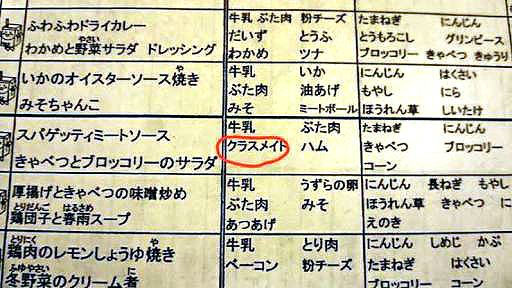 ふわふわドライカレー 牛乳 ぶた肉 粉チーズ たまねぎ にんじん
やさい だいず とうふ とうもろこし グリンピース
わかめと野菜サラダ ドレッシング わかめ ツナ ブロッコリー きゃべつ きゅうり
や 牛乳 いか にんじん はくさい
いかのオイスターソース焼き ぶた肉 油あげ もやし にら
みそちゃんこ みそ ミートボール ほうれん草 しいたけ
スパゲッティミートソース 牛乳 ぶた肉 たまねぎ にんじん
クラスメイト ハム きゃべつ ブロッコリー
きゃべつとブロッコリーのサラダ コーン
厚揚げときゃべつの味噌炒め 牛乳 うずらの卵 にんじん 長ねぎ もやし
とりだんご はるさめ ぶた肉 みそ ほうれん草 きゃべつ に
鶏団子と春雨スープ あつあげ えのき
とりにく や 牛乳 とり肉 にんじん しめじ かぶ
鶏肉のレモンしょうゆ焼き ベーコン 粉チーズ たまねぎ はくさい
ふゆやさい に
冬野菜のクリーム煮 ブロッコリー コーン